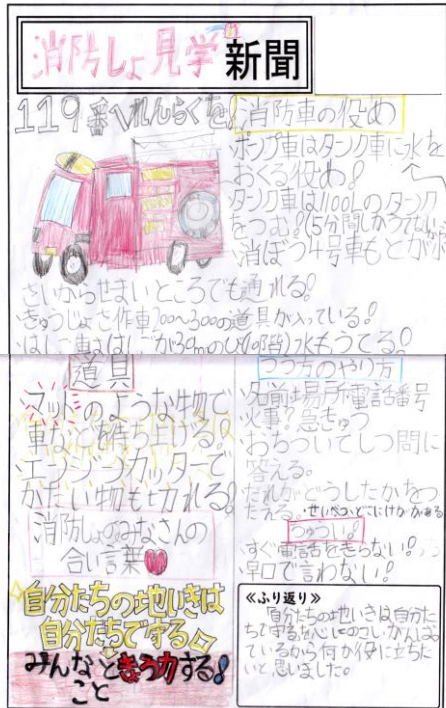 消防しょ見学新聞
119番へれんらくを!
消防車の役め
ポンプ車はタンク車に水を
おくる役め!
タンク車は1100Lのタンク
をつむ!(5分間しかうてない
消ぼう4号車もとが小
さいからせまいところでも通れる!
きゅうじょさ作車200〜300の道具が入っている!
はしご車ははしごが30mのび(10階)水もうてる!
道具
マットのような物で
車などを持ち上げる!
エンジンカッターで
かたい物も切れる!
消防しょのみなさんの
合い言葉
自分たちの地いきは
自分たちでする
みんなときょう力する!
こと
つうほうのやり方
名前・場所・電話番号
火事?急きゅう
おちついてしつ問に
答える。
だれがどうしたかをつ
たえる。・せいべつ・どこにけががある
ちゅうい!
すぐ電話を走らない!
早口で言わない!
≪ふり返り≫
「自分たちの地いきは自分た
ちで守る」を心にのこし、がんばっ
ているから何か役に立ちた
いと思いました。